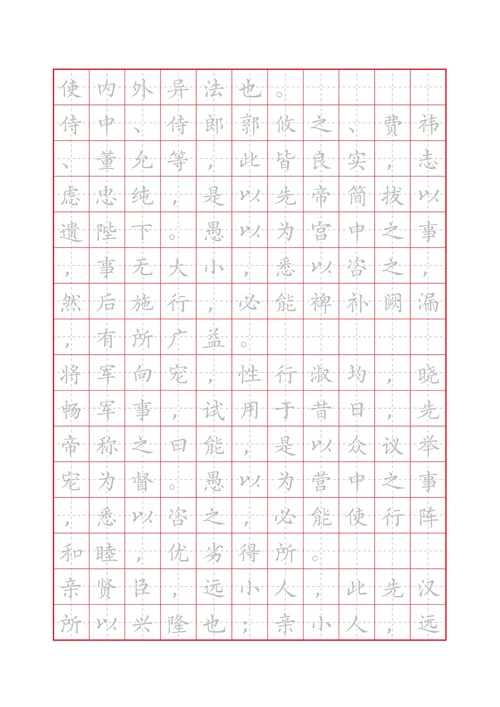 使内外异法也。
侍中、侍郎郭攸之、费祎
、董允等，此皆良实，志
虑忠纯，是以先帝简拔以
遗陛下。愚以为宫中之事
，事无大小，悉以咨之，
然后施行，必能裨补阙漏
，有所广益。
将军向宠，性行淑均，晓
畅军事，试用于昔日，先
帝称之曰能，是以众议举
宠为督。愚以为营中之事
，悉以咨之，必能使行阵
和睦，优劣得所。
亲贤臣，远小人，此先汉
所以兴隆也；亲小人，远